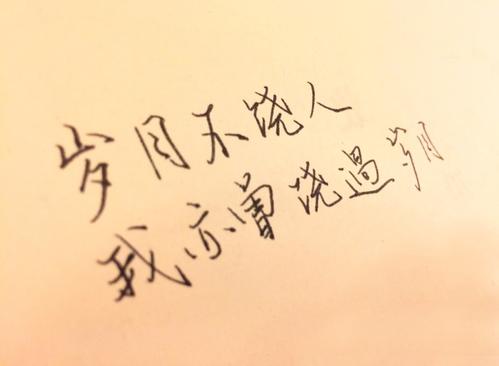 岁月不饶人
我亦曾饶過岁月